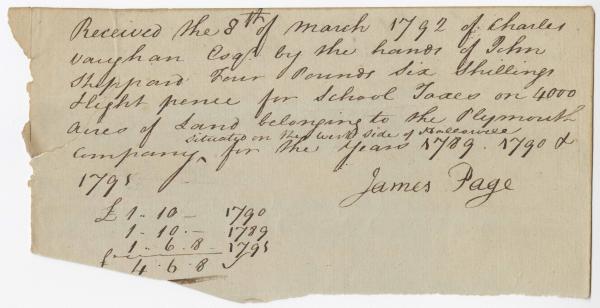 Received the 8th of march 1792 of Charles
Vaughan Esqr by the hands of John
Sheppard Four Pounds Six Shillings
& Eight pence for School Taxes on 4000
acres of Land belonging to the Plymouth
situated on the West side of Hallowell
Company ^ for the Years 1789. 1790 &
1791
James Page
£ 1 .. 10 — 1790
1 .. 10 .— 1789
1 .. 6 . 8 — 1791
£ 4 . 6 . 8